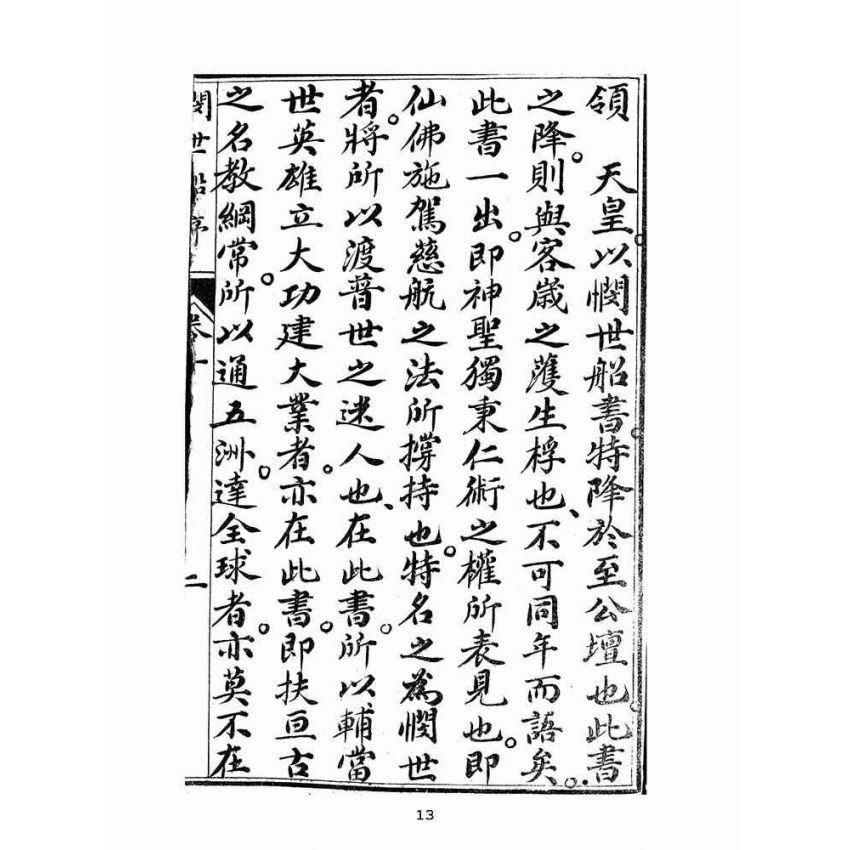 領　天皇。以憫世船書。特降於至公壇也。此書
之降。則與客歲之䕶生桴也、不可同年而語矣。
此書一出。即神聖獨秉仁術之權所表見也。即
仙佛施駕慈航之法所撐持也。特名之為憫世
者。將所以渡普世之迷人也、在此書。所以輔當
世英雄立大功建大業者。亦在此書。即扶亘古
之名教綱常。所以通五洲。達全球者。亦莫不在
憫世船序　卷一　二
13